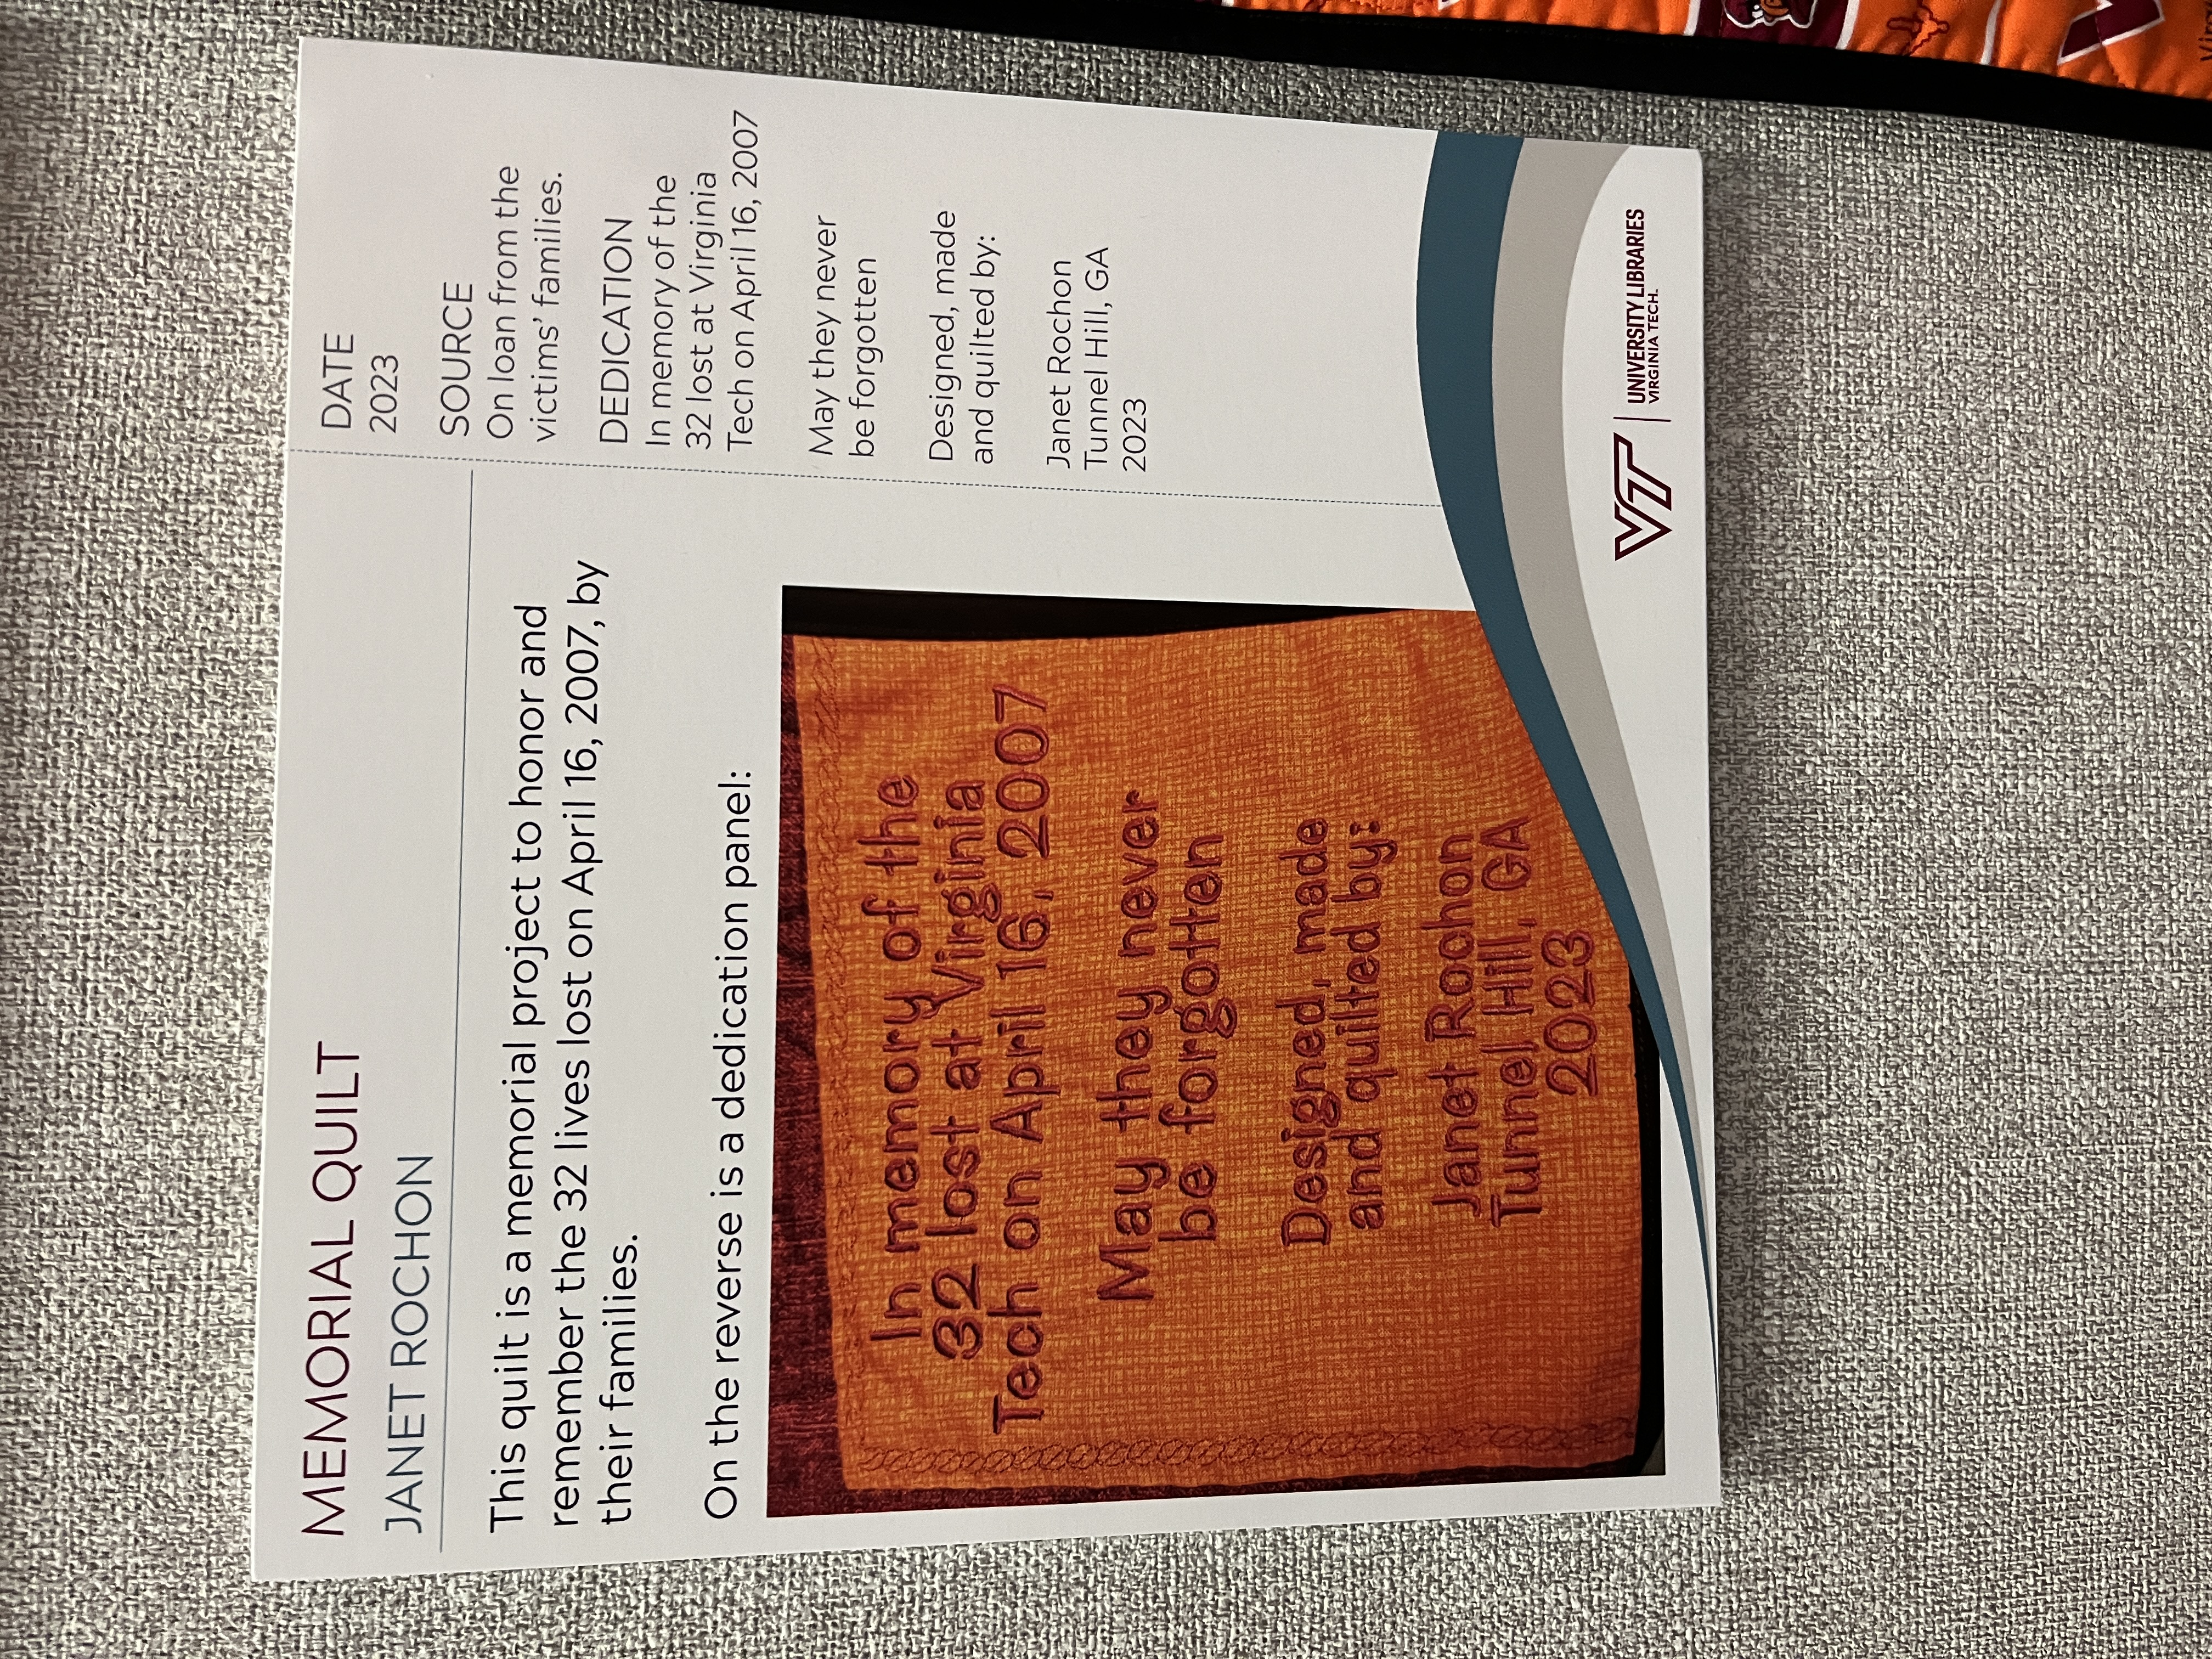 MEMORIAL QUILT
JANET ROCHON
This quilt is a memorial project to honor and
remember the 32 lives lost on April 16, 2007, by
their families.
On the reverse is a dedication panel:
In memory of the
32 lost at Virginia
Tech on April 16, 2007
May they never
be forgotten
Designed, made
and quilted by:
Janet Rochon
Tunnel Hill, GA
2023
DATE
2023
SOURCE
On loan from the
victims' families.
DEDICATION
In memory of the
32 lost at Virginia
Tech on April 16, 2007
May they never
be forgotten
Designed, made
and quilted by:
Janet Rochon
Tunnel Hill, GA
2023
VT
UNIVERSITY LIBRARIES
VIRGINIA TECH.